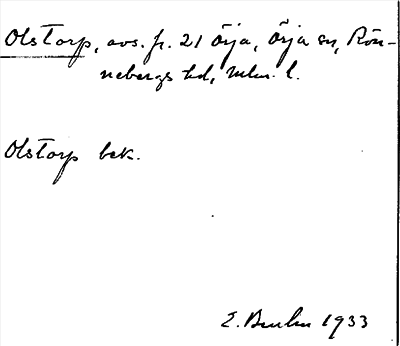 Olstorp, avs. fr. 21 Örja, Örja sn, Rön-
nebergs hd, Mlm. l.
Olstorp bek.
E. 1933